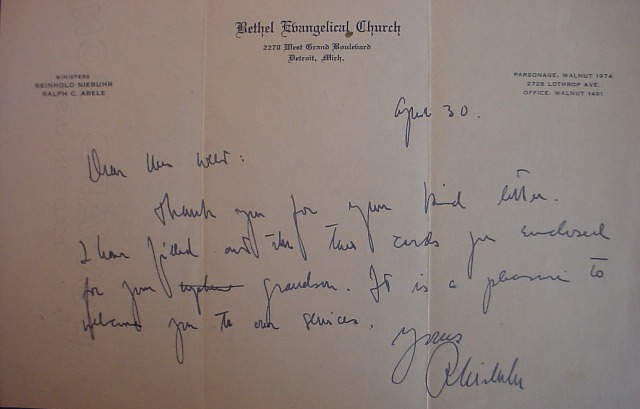 Bethel Evangelical Church
2270 West Grand Boulevard
Detroit, Mich.
MINISTERS
REINHOLD NIEBUHR
RALPH C. ABELE
PARSONAGE: WALNUT 1974
2726 LOTHROP AVE.
OFFICE: WALNUT 1491
April 30.
Dear
Thank you for your kind letter.
I have filled out the two cards you enclosed
for your grandson. It is a pleasure to
welcome you to our services.
Yours
RNiebuhr